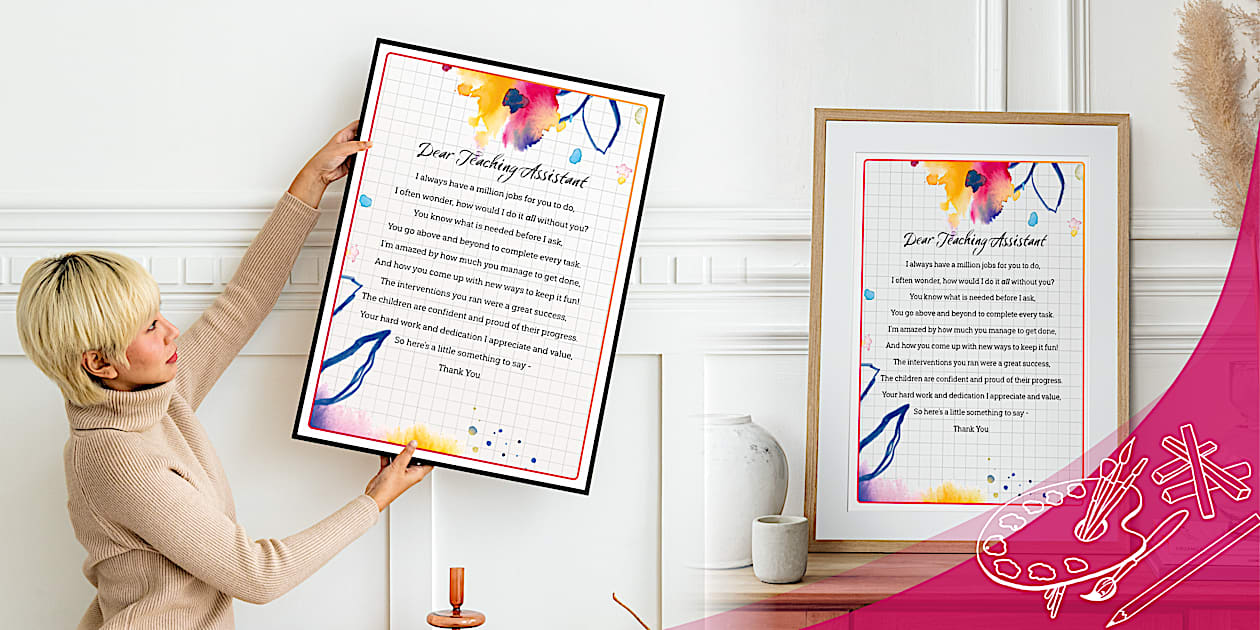 Dear Teaching Assistant
I always have a million jobs for you to do,
I often wonder, how would I do it all without you?
You know what is needed before I ask,
You go above and beyond to complete every task.
I'm amazed by how much you manage to get done,
And how you come up with new ways to keep it fun!
The interventions you ran were a great success,
The children are confident and proud of their progress.
Your hard work and dedication I appreciate and value,
So here's a little something to say -
Thank You
Dear Teaching Assistant
I always have a million jobs for you to do,
I often wonder, how would I do it all without you?
You know what is needed before I ask,
You go above and beyond to complete every task.
I'm amazed by how much you manage to get done,
And how you come up with new ways to keep it fun!
The interventions you ran were a great success,
The children are confident and proud of their progress.
Your hard work and dedication I appreciate and value,
So here's a little something to say -
Thank You